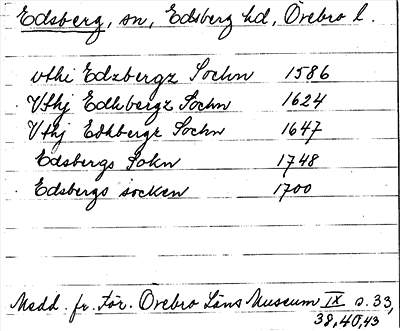 Edsberg, sn, Edsberg hd, Örebro l.
vthi Edzbergz Sochn 1586
Vthj Edhbergz Sochn 1624
Vthj Edhbergz Sochn 1647
Edsbergs Sokn 1748
Edsbergs socken 1700
Medd. fr. För. Örebro Läns Museum IX s. 33,
38, 40, 43